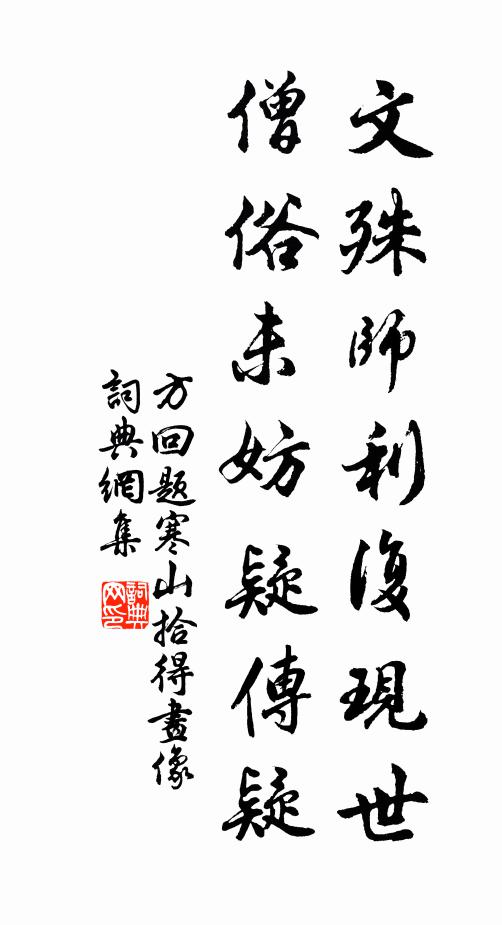 文殊師利復現世
僧俗未妨疑傳疑
方回題寒山拾得畫像
詞典網集
詞典
网印